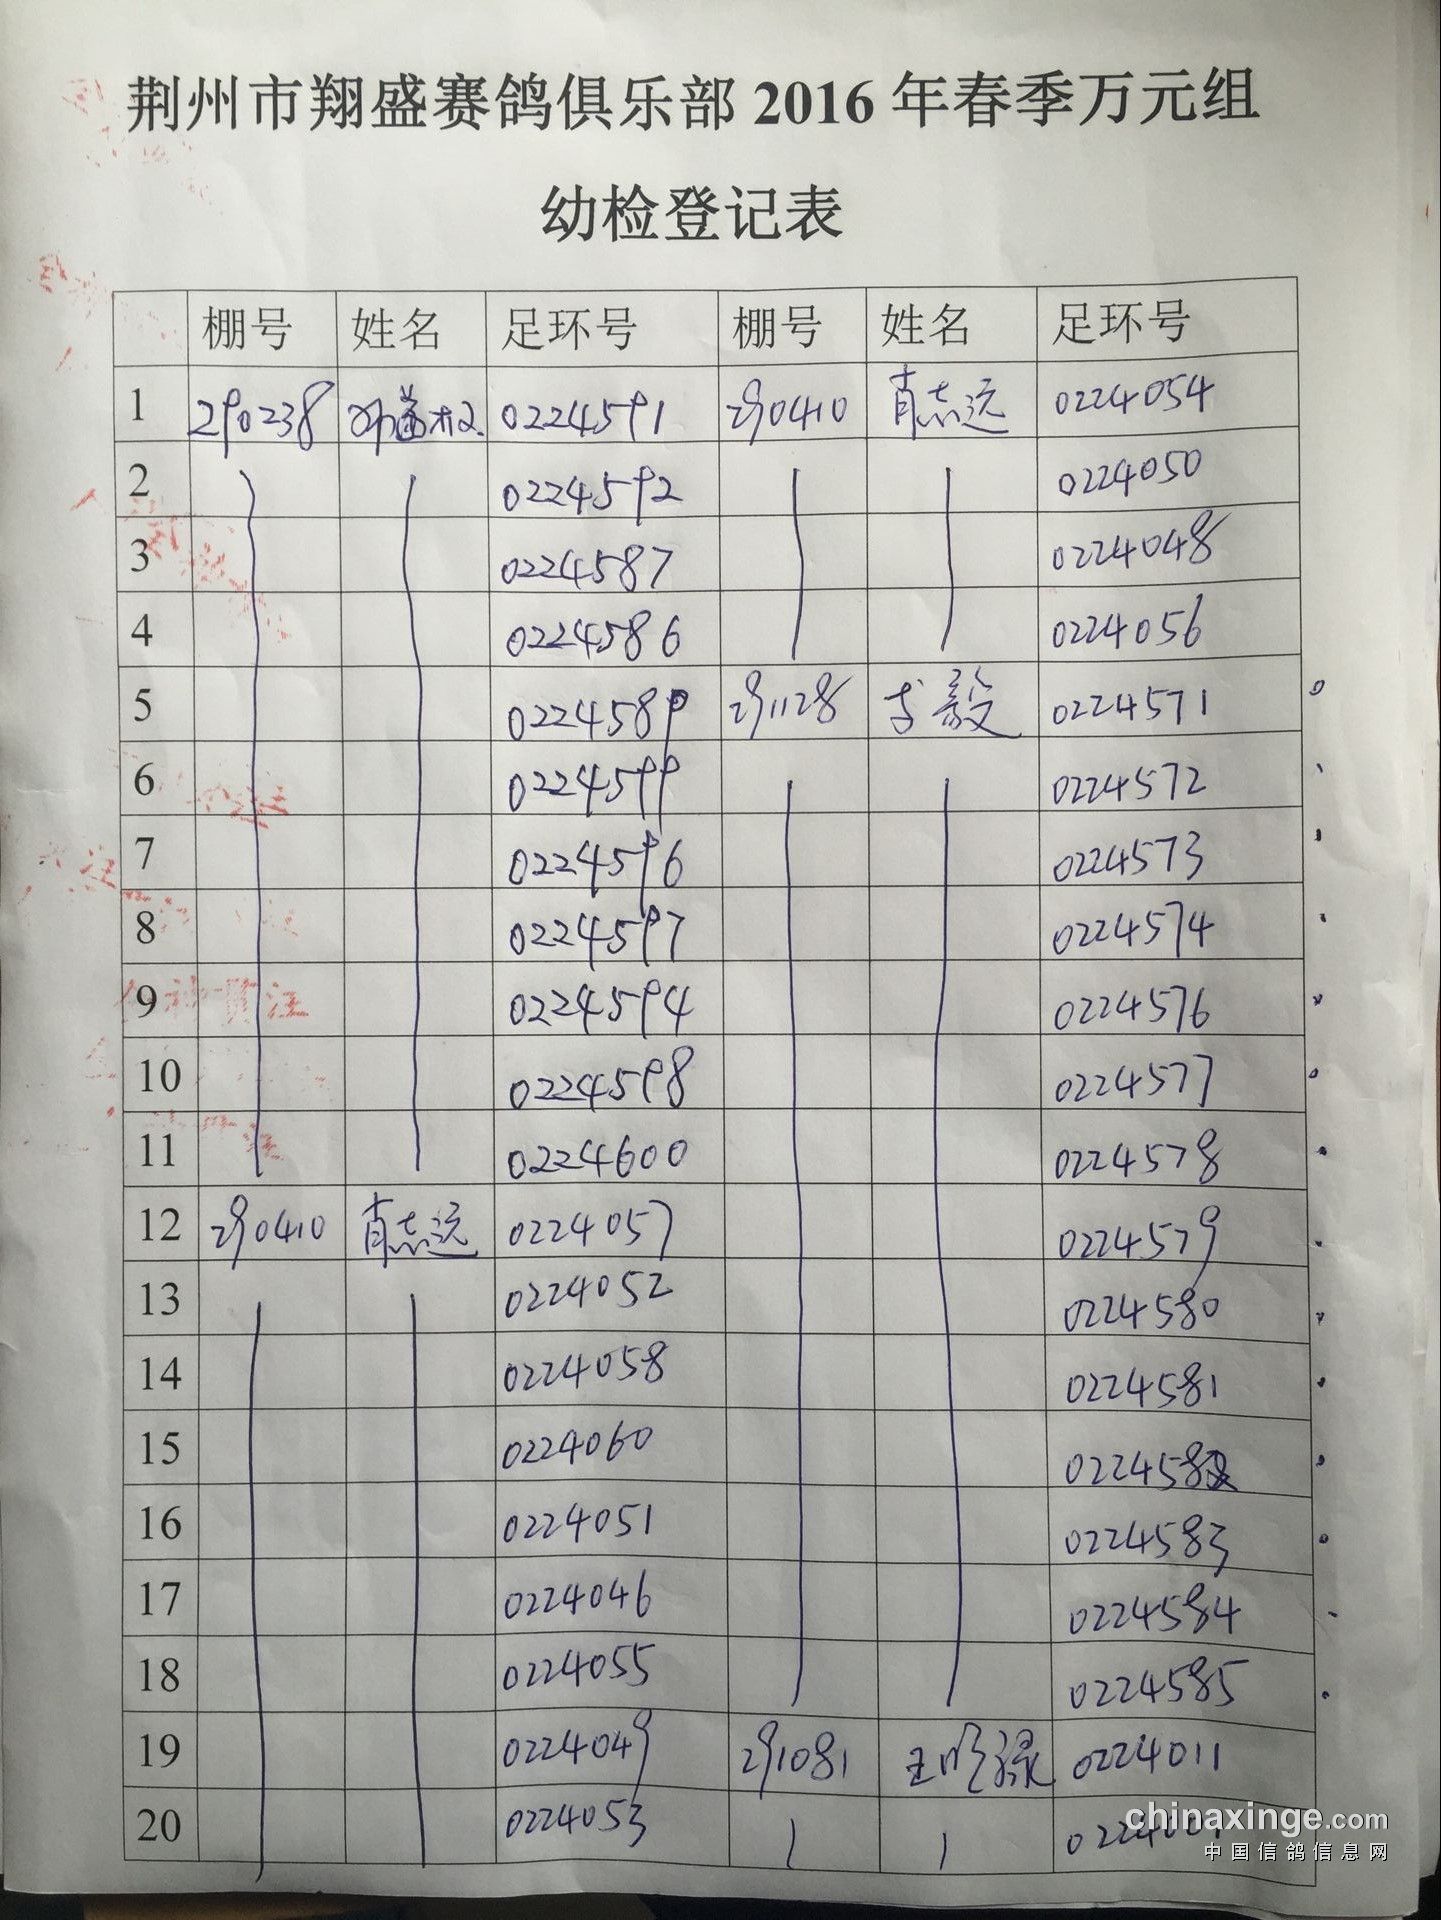 荆州市翔盛赛鸽俱乐部 2016 年春季万元组
幼检登记表
棚号 姓名 足环号 棚号 姓名 足环号
1 290238 0224591 290410 肖志远 0224054
2 0224592 0224050
3 0224587 0224048
4 0224586 0224056
5 0224589 291128 李毅 0224571
6 0224599 0224572
7 0224596 0224573
8 0224597 0224574
9 0224594 0224576
10 0224598 0224577
11 0224600 0224578
12 290410 肖志远 0224057 0224579
13 0224052 0224580
14 0224058 0224581
15 0224060 0224582
16 0224051 0224583
17 0224046 0224584
18 0224055 0224585
19 0224049 291081 0224011
20 0224053
chinaxinge.com
中国信鸽信息网